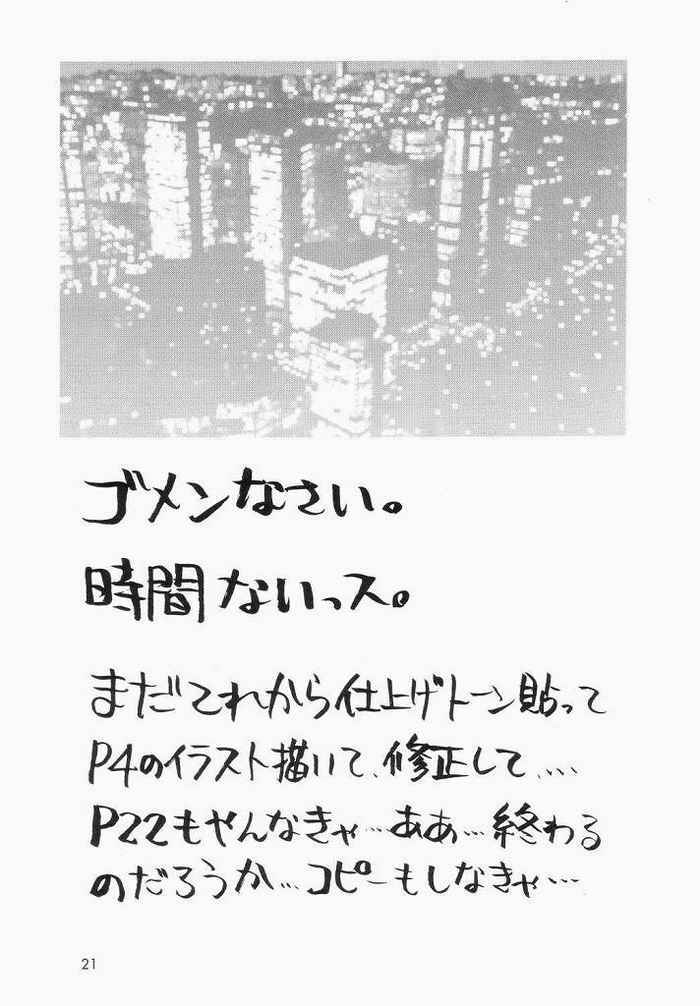 ゴメンなさい。
時間ないっス。
まだこれから仕上げトーン貼って
P4のイラスト描いて、修正して、…
P22もやんなきゃ…ああ…終わる
のだろうか…コピーもしなきゃ…
21